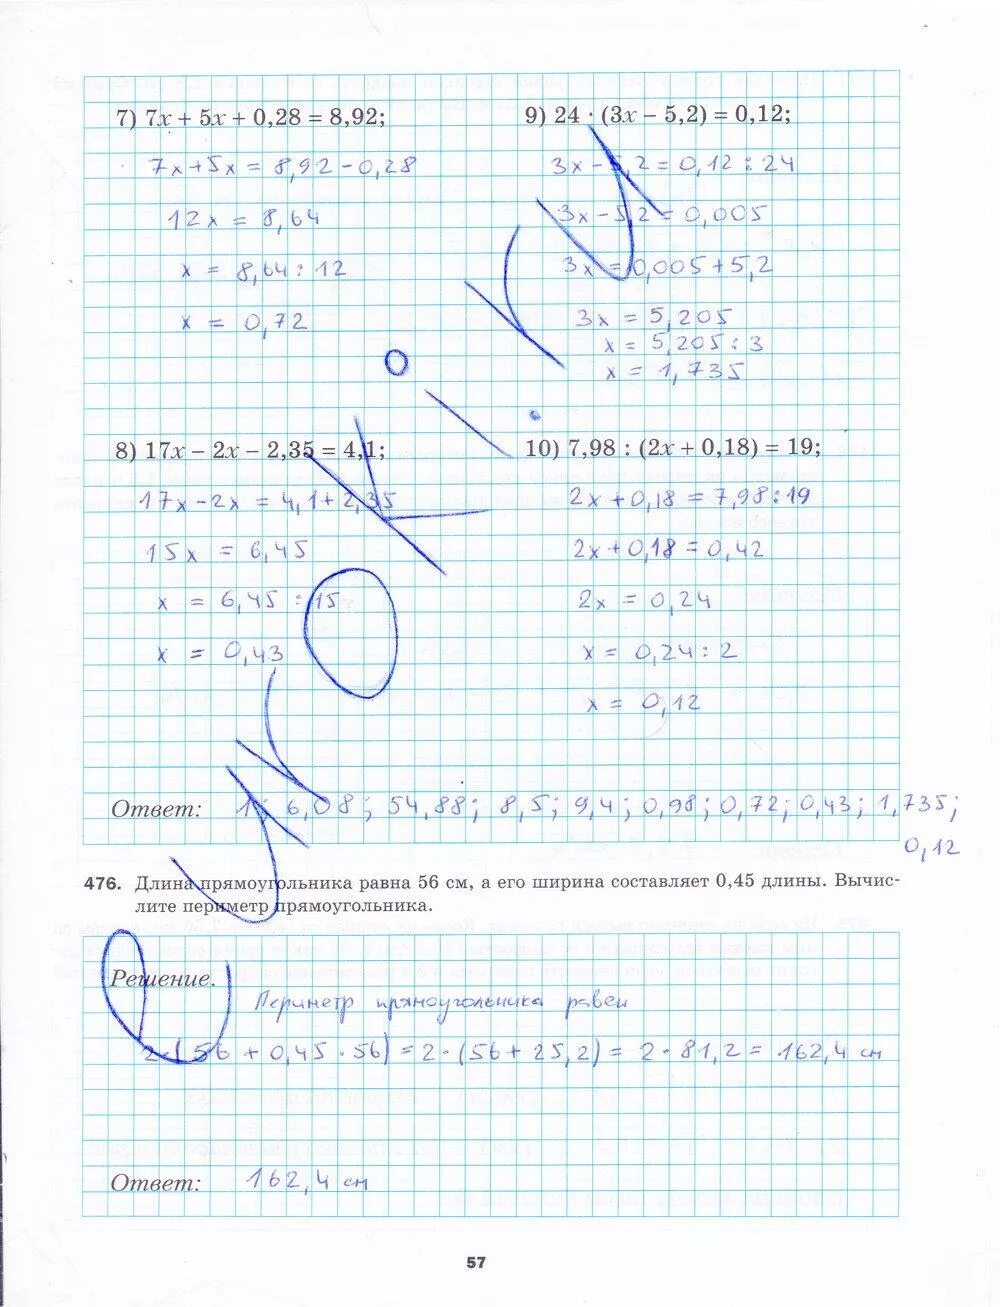 7) 7x + 5x + 0,28 = 8,92;
7x+5x = 8,92-0,28
12x = 8,64
x = 8,64 : 12
x = 0,72
9) 24 · (3x – 5,2) = 0,12;
3x-5,2 = 0,12 : 24
3x-5,2 = 0,005
3x = 0,005+5,2
3x = 5,205
x = 5,205 : 3
x = 1,735
8) 17x – 2x – 2,35 = 4,1;
17x-2x = 4,1+2,35
15x = 6,45
x = 6,45 : 15
x = 0,43
10) 7,98 : (2x + 0,18) = 19;
2x+0,18 = 7,98:19
2x+0,18 = 0,42
2x = 0,24
x = 0,24 : 2
x = 0,12
Ответ: 1; 6,08; 54,88; 8,5; 9,4; 0,98; 0,72; 0,43; 1,735;
0,12
476. Длина прямоугольника равна 56 см, а его ширина составляет 0,45 длины. Вычис-
лите периметр прямоугольника.
Решение.
Периметр прямоугольника равен
2·(56 + 0,45 · 56) = 2 · (56+ 25,2) = 2 · 81,2 = 162,4 см
Ответ: 162,4 см
57